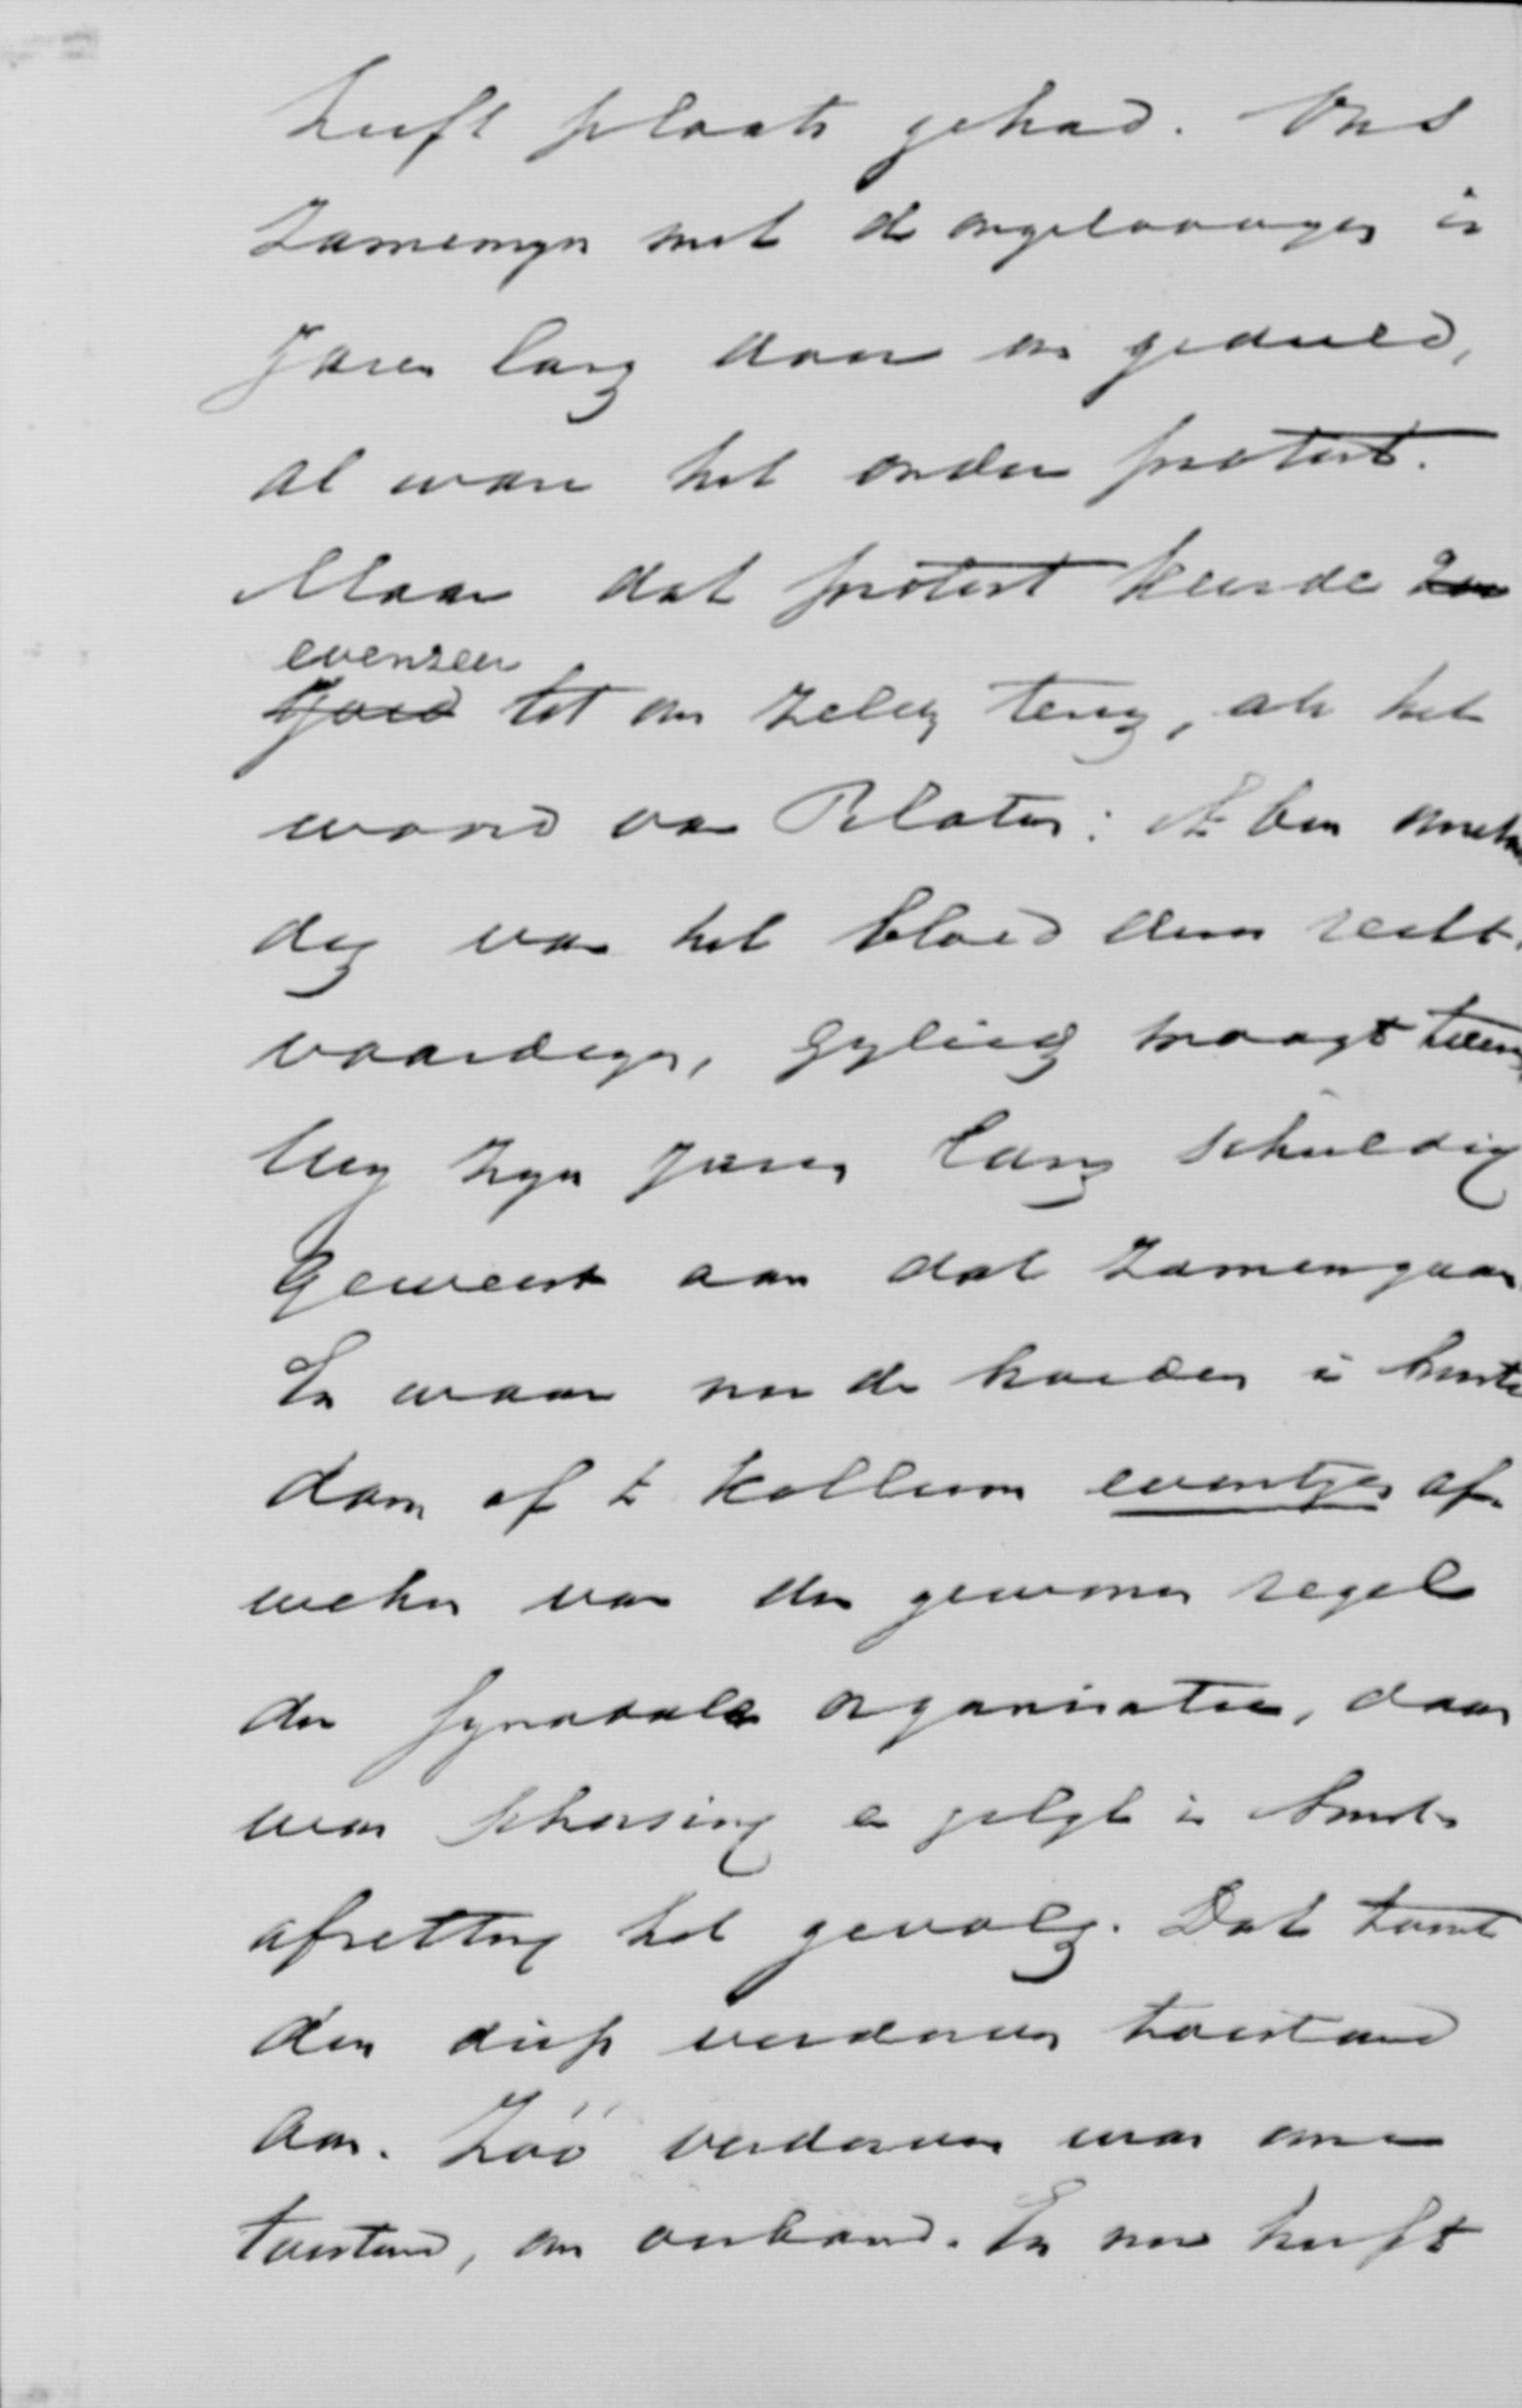 heeft plaats gehad. Ons
zamenzyn met de ongeloovigen is
Jaren lang door ons geduld,
al ware het onder protest.
Maar dat protest keerde
evenzeer
tot ons zelven terug, als het
woord van Pilatus: Ik ben onschul
dig van het bloed dezes recht-
vaardigen, Gylieden moogt toezien
Wy zyn Jaren lang schuldig
geweest aan dat zamengaan
En waar nu de broeders in Amster
dam of te Kollum eventjes af-
weken van den gewonen regel
der Synodale organisatie, daar
was schorsing en gelyk in Amst.
afzetting het gevolg. Dat toont
den diep verdorven toestand
aan. Zóó verdorven was onze
toestand, ons verband. En nu heeft